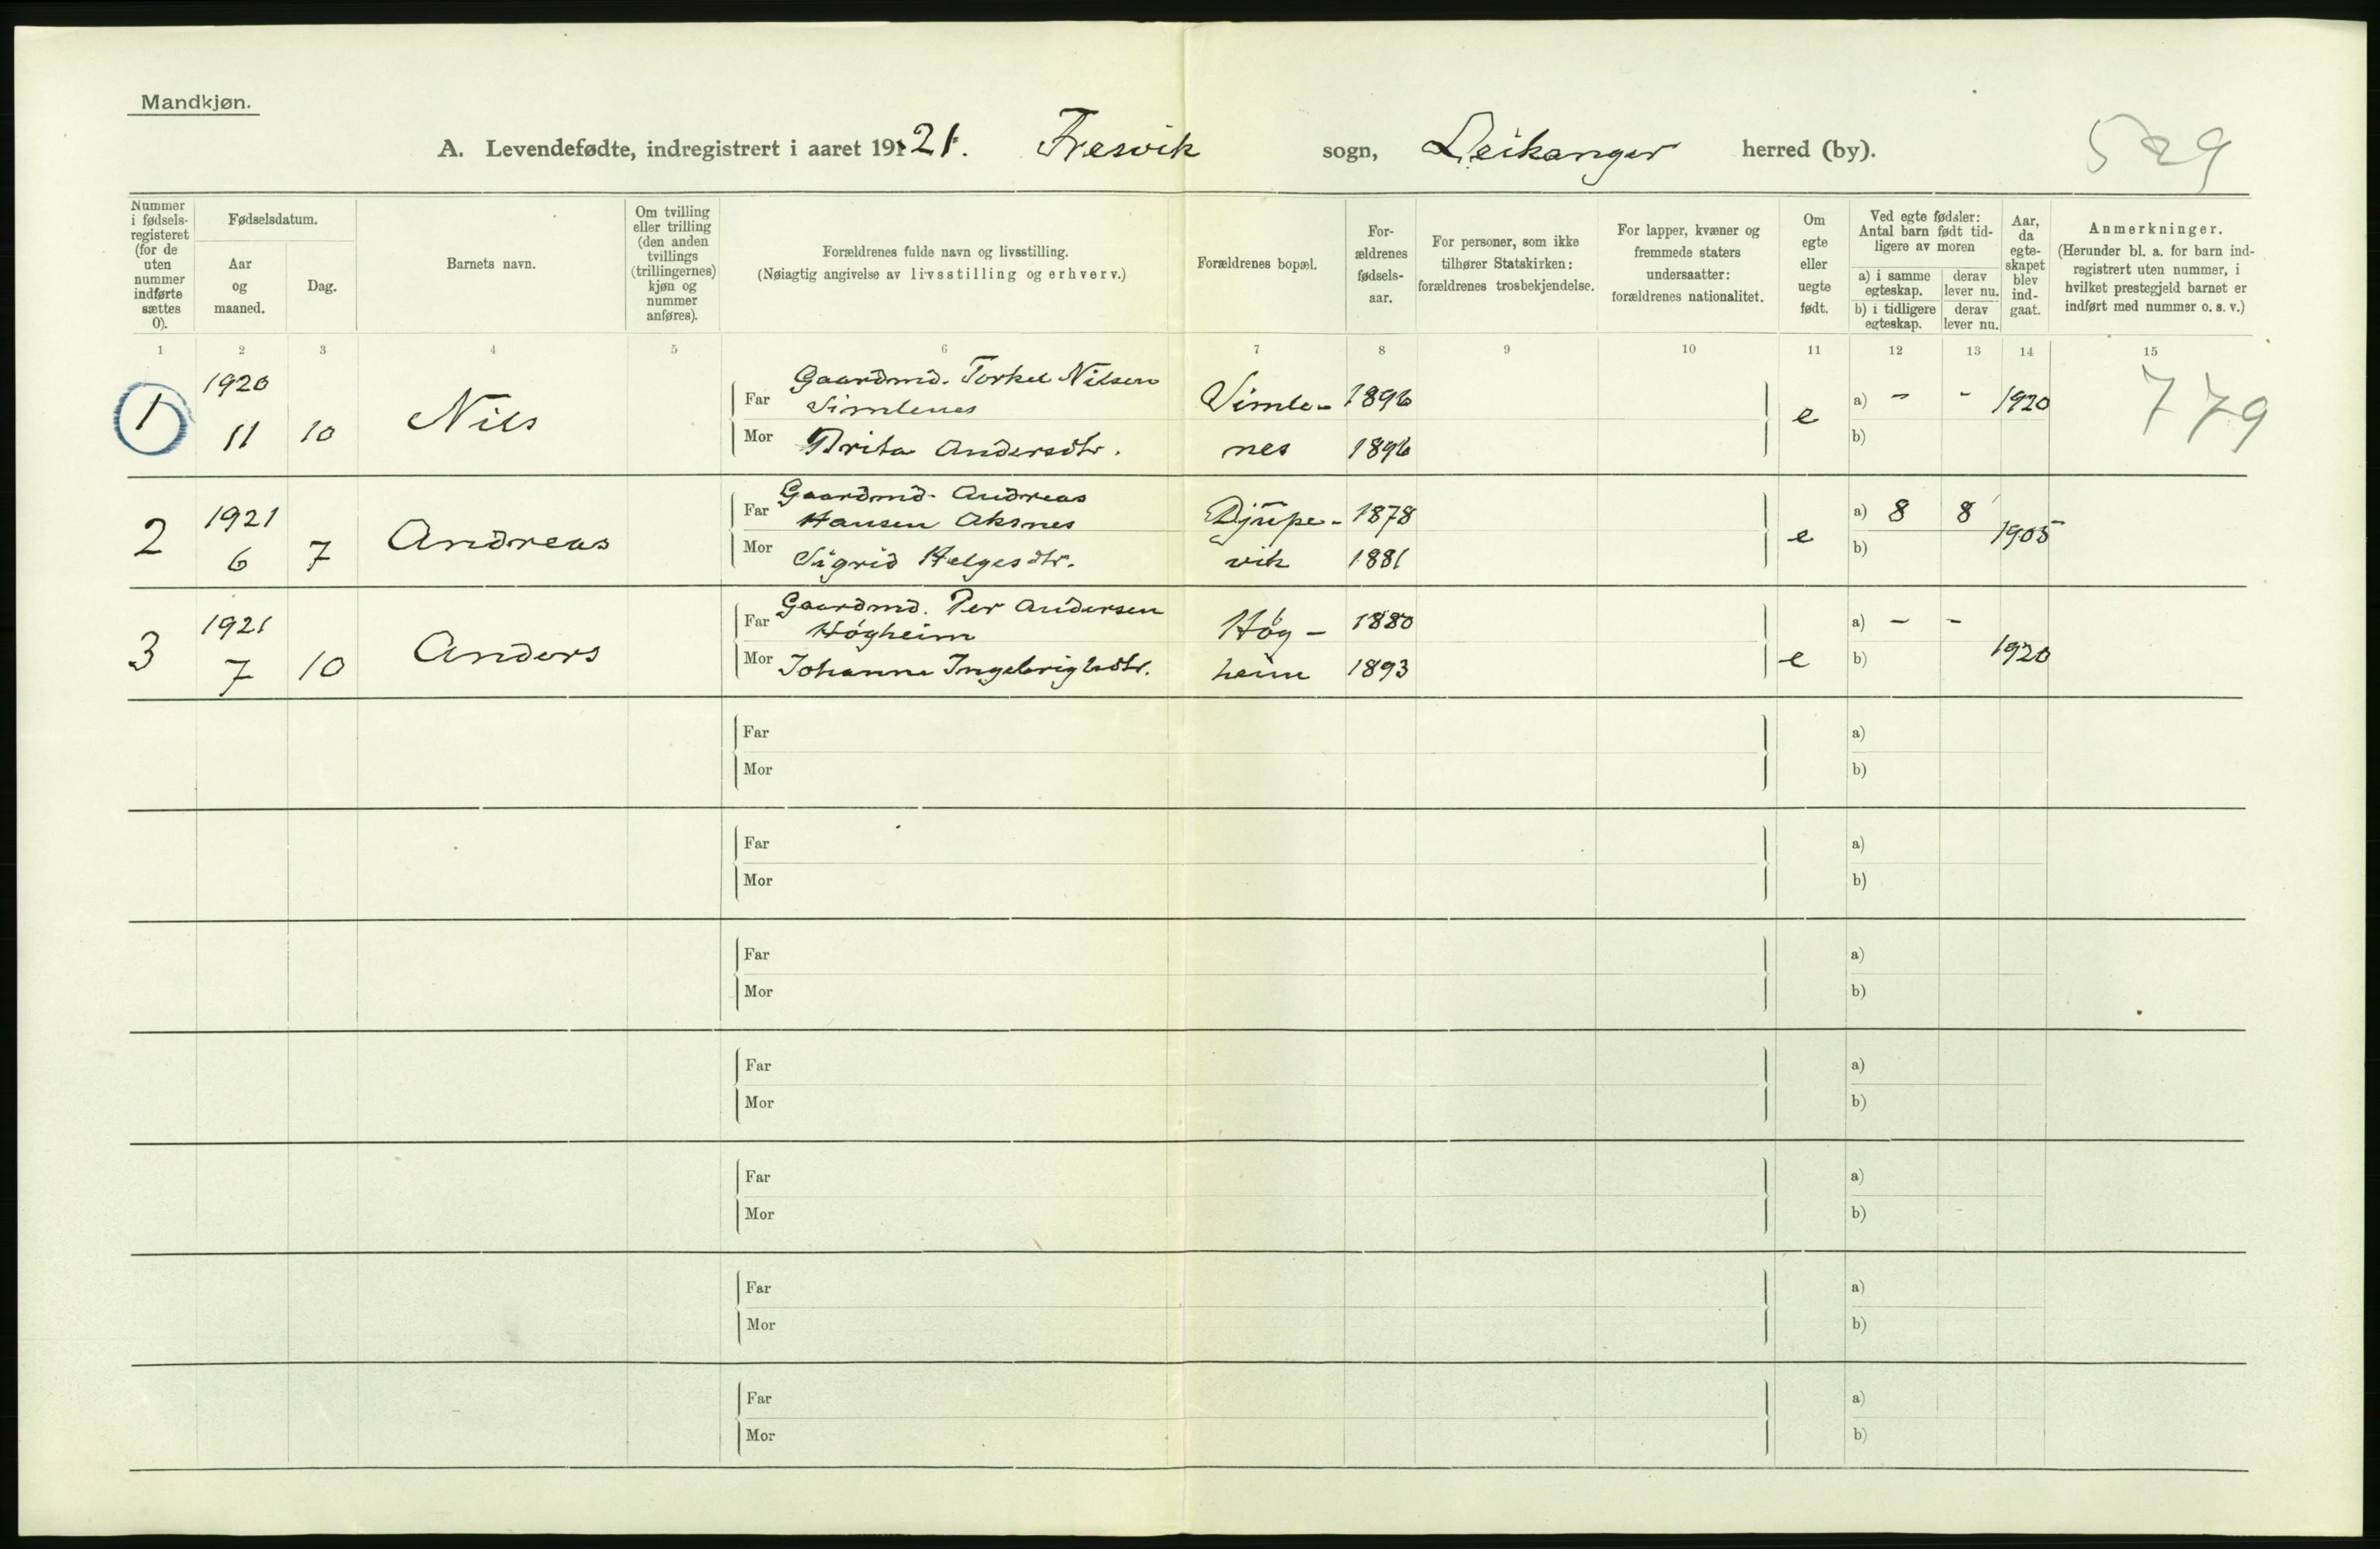 Mandkjøn.
A. Levendefødte, indregistrert i aaret 1921. Fresvik sogn, Leikanger herred (by).
529
Nummer i fødsels-registeret (for de uten nummer indførte sættes 0).
Fødselsdatum.
Aar og maaned.
Dag.
Barnets navn.
Om tvilling eller trilling (den anden tvillings (trillingernes) kjøn og nummer anføres).
Forældrenes fulde navn og livsstilling.
(Nøiagtig angivelse av livsstilling og erhverv.)
Forældrenes bopæl.
For-ældrenes fødsels-aar.
For personer, som ikke tilhører Statskirken: forældrenes trosbekjendelse.
For lapper, kvæner og fremmede staters undersaatter: forældrenes nationalitet.
Om egte eller uegte født.
Ved egte fødsler: Antal barn født tid-ligere av moren
a) i samme egteskap.
derav lever nu.
b) i tidligere egteskap.
derav lever nu.
Aar, da egte-skapet blev ind-gaat.
Anmerkninger.
(Herunder bl. a. for barn ind-registrert uten nummer, i hvilket prestegjeld barnet er indført med nummer o. s. v.)
1 2 3 4 5 6 7 8 9 10 11 12 13 14 15
1 1920 11 10 Nils
Far Gaardmd. Torkel Nilsen
Simlenes
Mor Brita Andersdtr.
Simle-
nes
1896
1896
e
a) - - 1920
b)
779
2 1921 6 7 Andreas
Far Gaardmd. Andreas
Hansen Aksnes
Mor Sigrid Helgesdtr.
Djupe-
vik
1878
1881
e
a) 8 8 1905
b)
3 1921 7 10 Anders
Far Gaardmd. Per Andersen
Høgheim
Mor Johanne Ingebrigtsdtr.
Høg-
heim
1880
1893
e
a) - - 1920
b)
Far a)
Mor b)
Far a)
Mor b)
Far a)
Mor b)
Far a)
Mor b)
Far a)
Mor b)
Far a)
Mor b)
Far a)
Mor b)